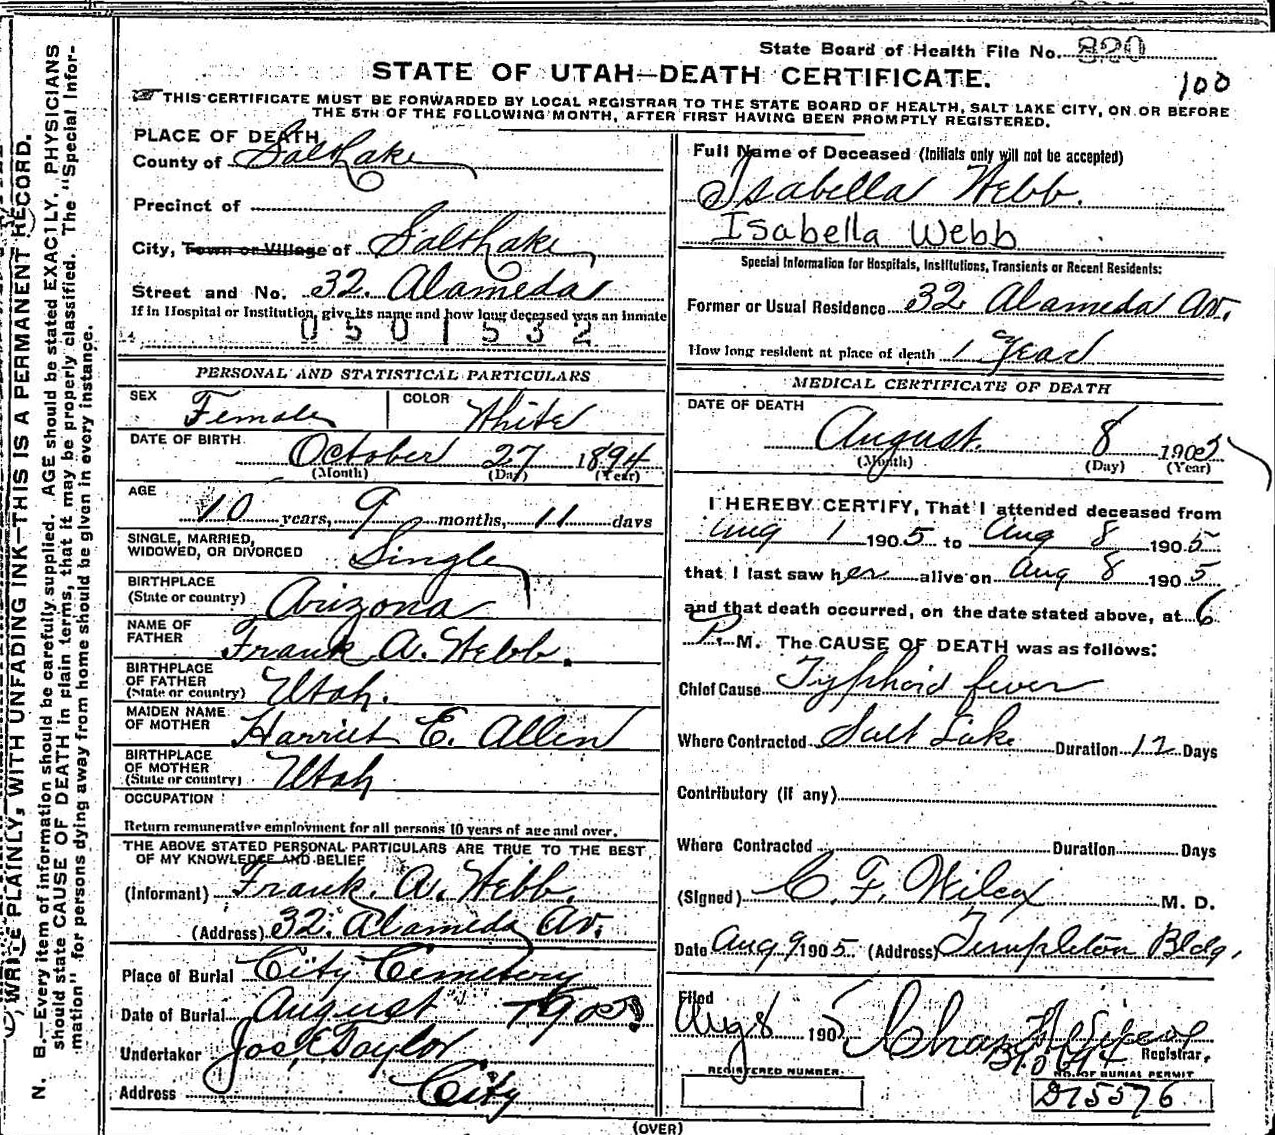 State Board of Health File No. 820
STATE OF UTAH—DEATH CERTIFICATE.
100
THIS CERTIFICATE MUST BE FORWARDED BY LOCAL REGISTRAR TO THE STATE BOARD OF HEALTH, SALT LAKE CITY, ON OR BEFORE
THE 5TH OF THE FOLLOWING MONTH, AFTER FIRST HAVING BEEN PROMPTLY REGISTERED.
PLACE OF DEATH
County of Salt Lake
Precinct of
City, Town or Village of Salt Lake
Street and No. 32. Alameda
If in Hospital or Institution, give its name and how long deceased was an inmate
0501532
PERSONAL AND STATISTICAL PARTICULARS
SEX Female COLOR White
DATE OF BIRTH October 27 1894
(Month) (Day) (Year)
AGE 10 years, 9 months, 11 days
SINGLE, MARRIED,
WIDOWED, OR DIVORCED Single
BIRTHPLACE
(State or country) Arizona
NAME OF
FATHER Frank A. Webb.
BIRTHPLACE
OF FATHER
(State or country) Utah.
MAIDEN NAME
OF MOTHER Harriet E. Allen
BIRTHPLACE
OF MOTHER
(State or country) Utah
OCCUPATION
Return remunerative employment for all persons 10 years of age and over.
THE ABOVE STATED PERSONAL PARTICULARS ARE TRUE TO THE BEST
OF MY KNOWLEDGE AND BELIEF
(Informant) Frank. A. Webb.
(Address) 32. Alameda Av.
Place of Burial City Cemetery
Date of Burial August 1905
Undertaker Jos. E. Taylor
Address City
Full Name of Deceased (Initials only will not be accepted)
Isabella Webb.
Isabella Webb
Special Information for Hospitals, Institutions, Transients or Recent Residents:
Former or Usual Residence 32 Alameda Av.
How long resident at place of death 1 Year
MEDICAL CERTIFICATE OF DEATH
DATE OF DEATH
August. 8 1905
(Month) (Day) (Year)
I HEREBY CERTIFY, That I attended deceased from
Aug 1 1905 to Aug 8 1905
that I last saw her alive on Aug 8 1905
and that death occurred, on the date stated above, at 6
P. M. The CAUSE OF DEATH was as follows:
Chief Cause Typhoid fever
Where Contracted Salt Lake Duration 12 Days
Contributory (if any)
Where Contracted Duration Days
(Signed) C. F. Wilcox M. D.
Date Aug 9 1905 (Address) Templeton Bldg.
Filed
Aug 8 1905
Registrar.
REGISTERED NUMBER
NO. OF BURIAL PERMIT
D15576
(OVER)
WRITE PLAINLY, WITH UNFADING INK—THIS IS A PERMANENT RECORD.
N. B.—Every item of information should be carefully supplied. AGE should be stated EXACTLY. PHYSICIANS
should state CAUSE OF DEATH in plain terms, that it may be properly classified. The "Special Infor-
mation" for persons dying away from home should be given in every instance.